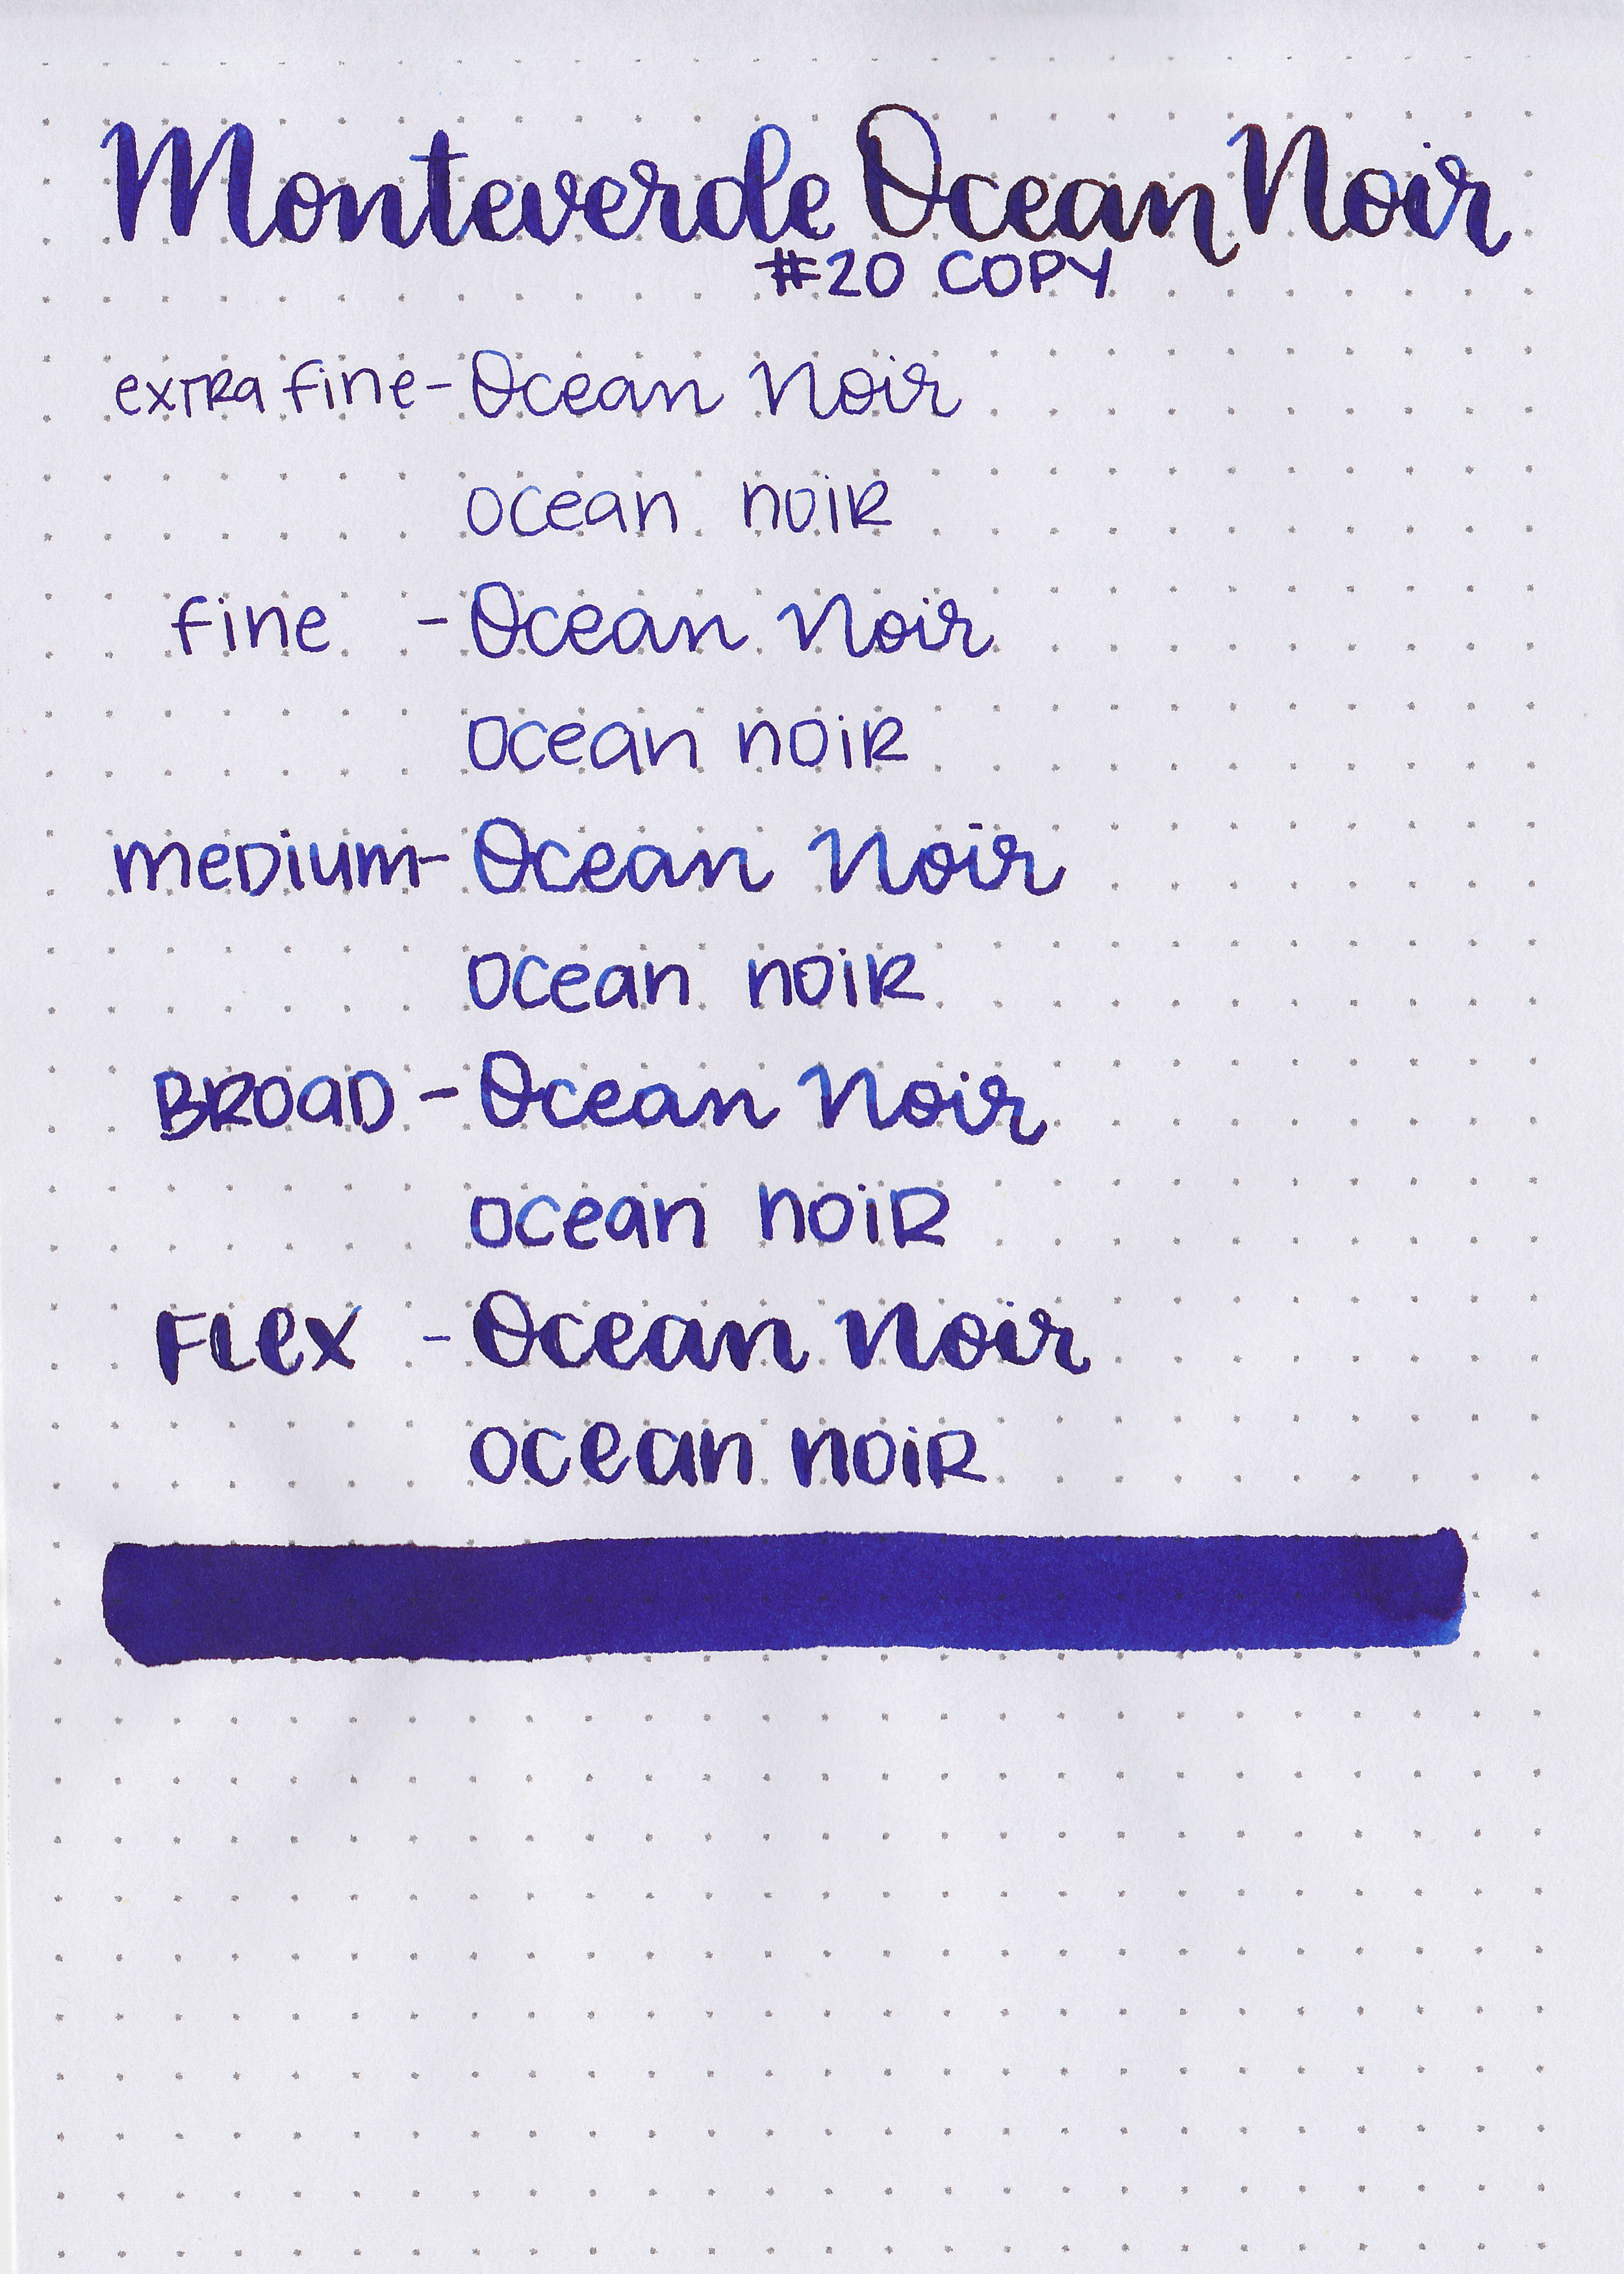 Monteverde Ocean Noir
#20 COPY
extra fine - Ocean Noir
ocean noir
fine - Ocean Noir
ocean noir
medium - Ocean Noir
ocean noir
Broad - Ocean Noir
ocean noir
Flex - Ocean Noir
ocean noir